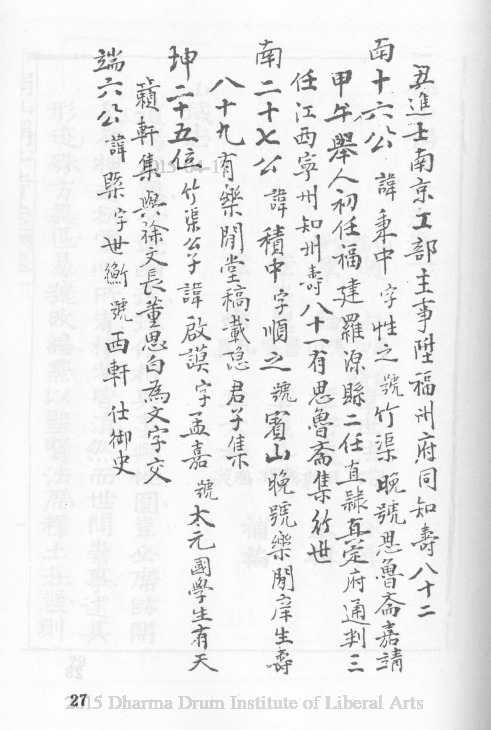 丑進士南京工部主事陞福州府同知壽八十二
南十六公諱秉中字性之號竹渠晚號思魯齋嘉靖
甲午舉人初任福建羅源縣二任直隸真定府通判三
任江西寧州知州壽八十一有思魯齋集行世
南二十七公諱積中字順之號賓山晚號樂閒庠生壽
八十九有樂閒堂稿載隐君子集
坤二十五位竹渠公子諱啟謨字孟嘉號太元國學生有天
籟軒集與徐文長董思白為文字交
端六公諱槼字世衡號西軒仕御史
27
2015 Dharma Drum Institute of Liberal Arts